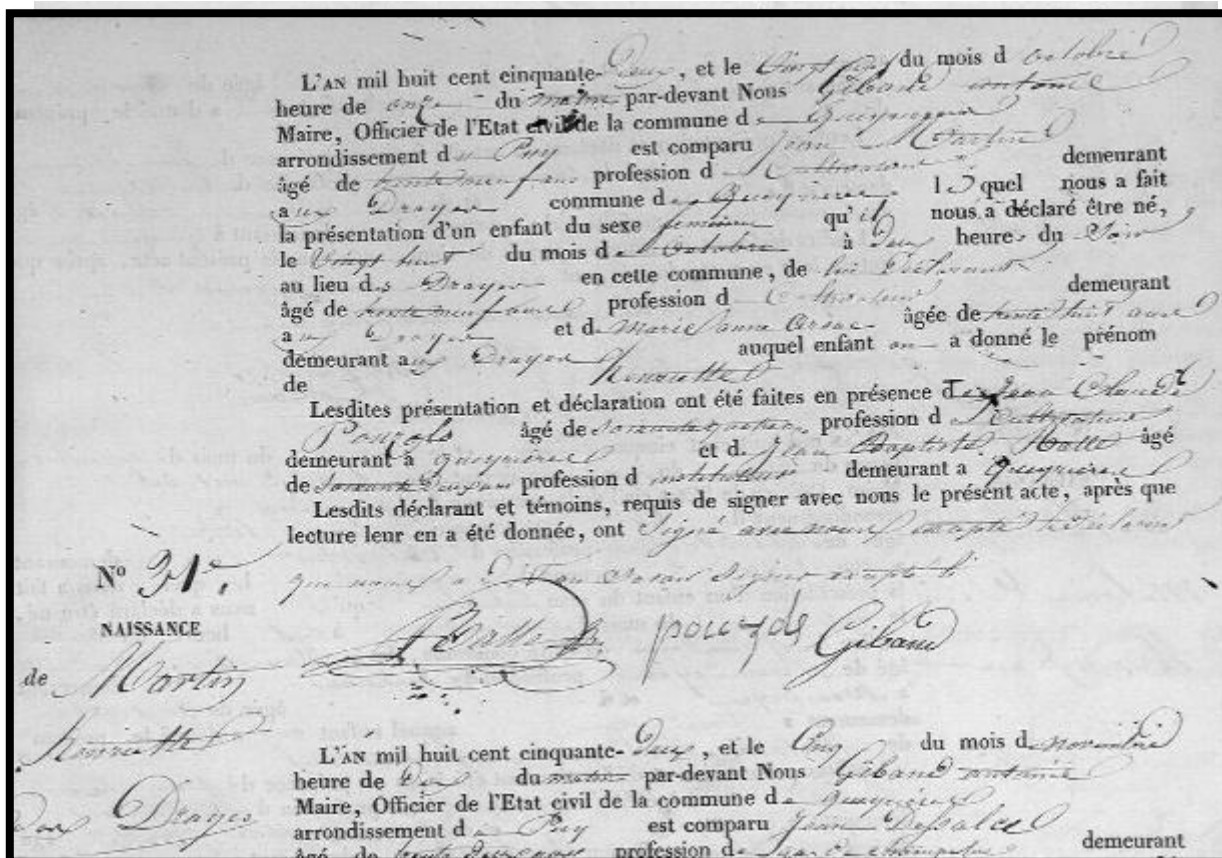 L'AN mil huit cent cinquante-Deux, et le Vingt du mois d octobre
heure de onze du matin par-devant Nous Gibaud antoine
Maire, Officier de l'Etat civil de la commune de Queyrieres
arrondissement du Puy est comparu Jean Martin
âgé de trente neuf ans profession de Cultivateur demeurant
aux Drayes commune de Queyrieres lequel nous a fait
la présentation d'un enfant du sexe feminin qu'il nous a déclaré être né,
le Vingt huit du mois de octobre à Deux heures du Soir
au lieu des Drayes en cette commune, de lui déclarant
âgé de trente neuf ans profession de Cultivateur demeurant
aux Drayes et de Marie anne arsac âgée de trente huit ans
demeurant aux Drayes auquel enfant on a donné le prénom
de Henriette
Lesdites présentation et déclaration ont été faites en présence de Jean Claude
Pouzols âgé de profession de Cultivateur
demeurant à Queyrieres et de Jean Baptiste Halle âgé
de Soixante Deux ans profession d instituteur demeurant a Queyrieres
Lesdits déclarant et témoins, requis de signer avec nous le présent acte, après que
lecture leur en a été donnée, ont Signé avec nous excepté le déclarant
No 31e. que nous a Savoir Signer
NAISSANCE
Halle pouzols Gibaud
de Martin
Henriette
Drayes
L'AN mil huit cent cinquante-Deux, et le Cinq du mois de novembre
heure de du matin par-devant Nous Gibaud antoine
Maire, Officier de l'Etat civil de la commune de Queyrieres
arrondissement du Puy est comparu Jean
âgé de trente profession de demeurant